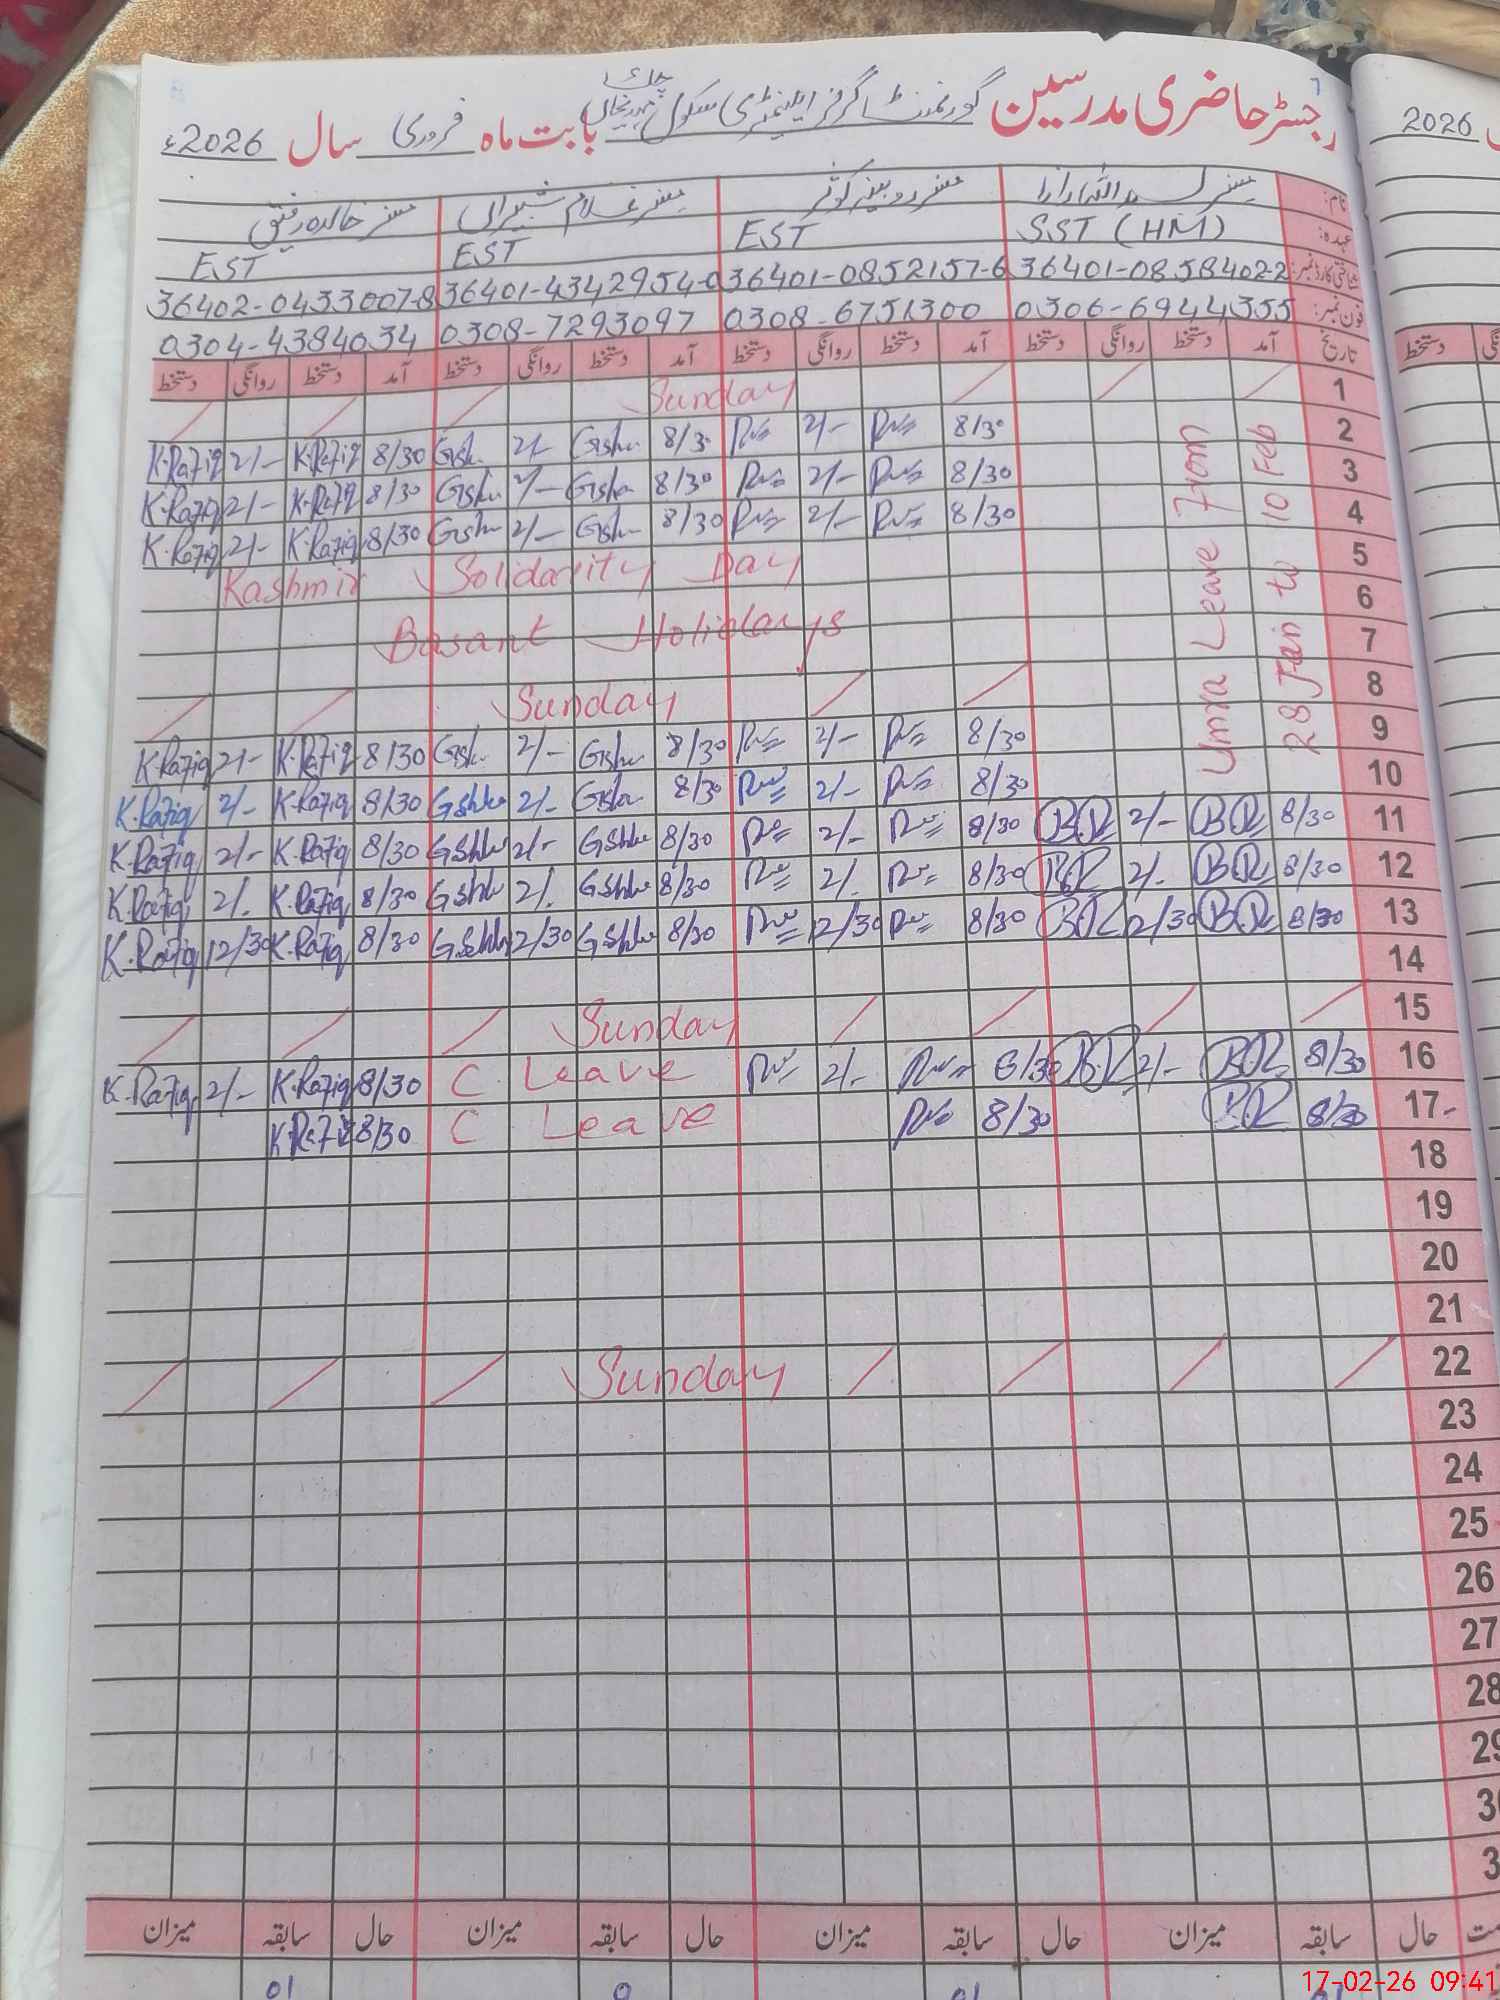 رجسٹر حاضری مدرسین گورنمنٹ گرلز ایلیمنٹری سکول چک بابت ماہ فروری سال 2026ء
2026
نام: مسز مسز روبینہ کوثر مسز غلام شبیراں مسز خالدہ رفیق
عہدہ: SST (HM) EST EST EST
شناختی کارڈ نمبر: 36401-0858402-2 36401-0852157-6 36401-4342954-0 36402-0433007-8
فون نمبر: 0306-6944355 0308-6751300 0308-7293097 0304-4384034
تاریخ آمد دستخط روانگی دستخط آمد دستخط روانگی دستخط آمد دستخط روانگی دستخط آمد دستخط روانگی دستخط
دستخط
1 Sunday
Umra Leave from
28 Jan to 10 Feb
2 8/30 2/- 8/30 2/- 8/30 K.Rafiq 2/- K.Rafiq
3 8/30 2/- 8/30 2/- 8/30 K.Rafiq 2/- K.Rafiq
4 8/30 2/- 8/30 2/- 8/30 K.Rafiq 2/- K.Rafiq
5 Kashmir Solidarity Day
6
7 Basant Holidays
8 Sunday
9 8/30 2/- 8/30 2/- 8/30 K.Rafiq 2/- K.Rafiq
10 8/30 2/- 8/30 2/- 8/30 K.Rafiq 2/- K.Rafiq
11 8/30 BR 2/- BR 8/30 2/- 8/30 2/- 8/30 K.Rafiq 2/- K.Rafiq
12 8/30 BR 2/. BR 8/30 2/. 8/30 2/. 8/30 K.Rafiq 2/. K.Rafiq
13 8/30 BR 12/30 BR 8/30 12/30 8/30 12/30 8/30 K.Rafiq 12/30 K.Rafiq
14
15 Sunday
16 8/30 BR 2/- BR 8/30 2/- C Leave 8/30 K.Rafiq 2/- K.Rafiq
17 8/30 BR 8/30 C Leave 8/30 K.Rafiq
18
19
20
21
22 Sunday
23
24
25
26
27
28
29
30
3
حال سابقہ میزان حال سابقہ میزان حال سابقہ میزان حال سابقہ میزان
01 0 01 01
17-02-26 09:41